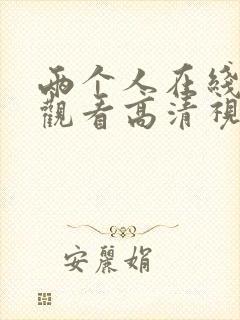 两个人在线
觀看高清視
安麗娟